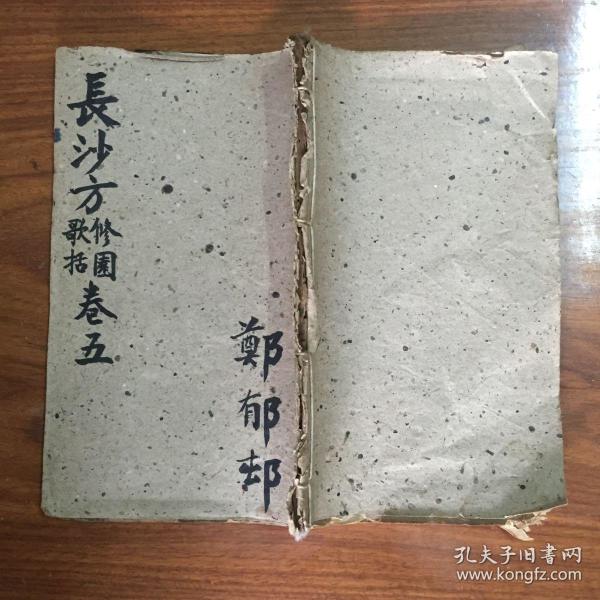 長沙方
修園
歌括
卷五
鄭郁邨
孔夫子旧書网
www.kongfz.com